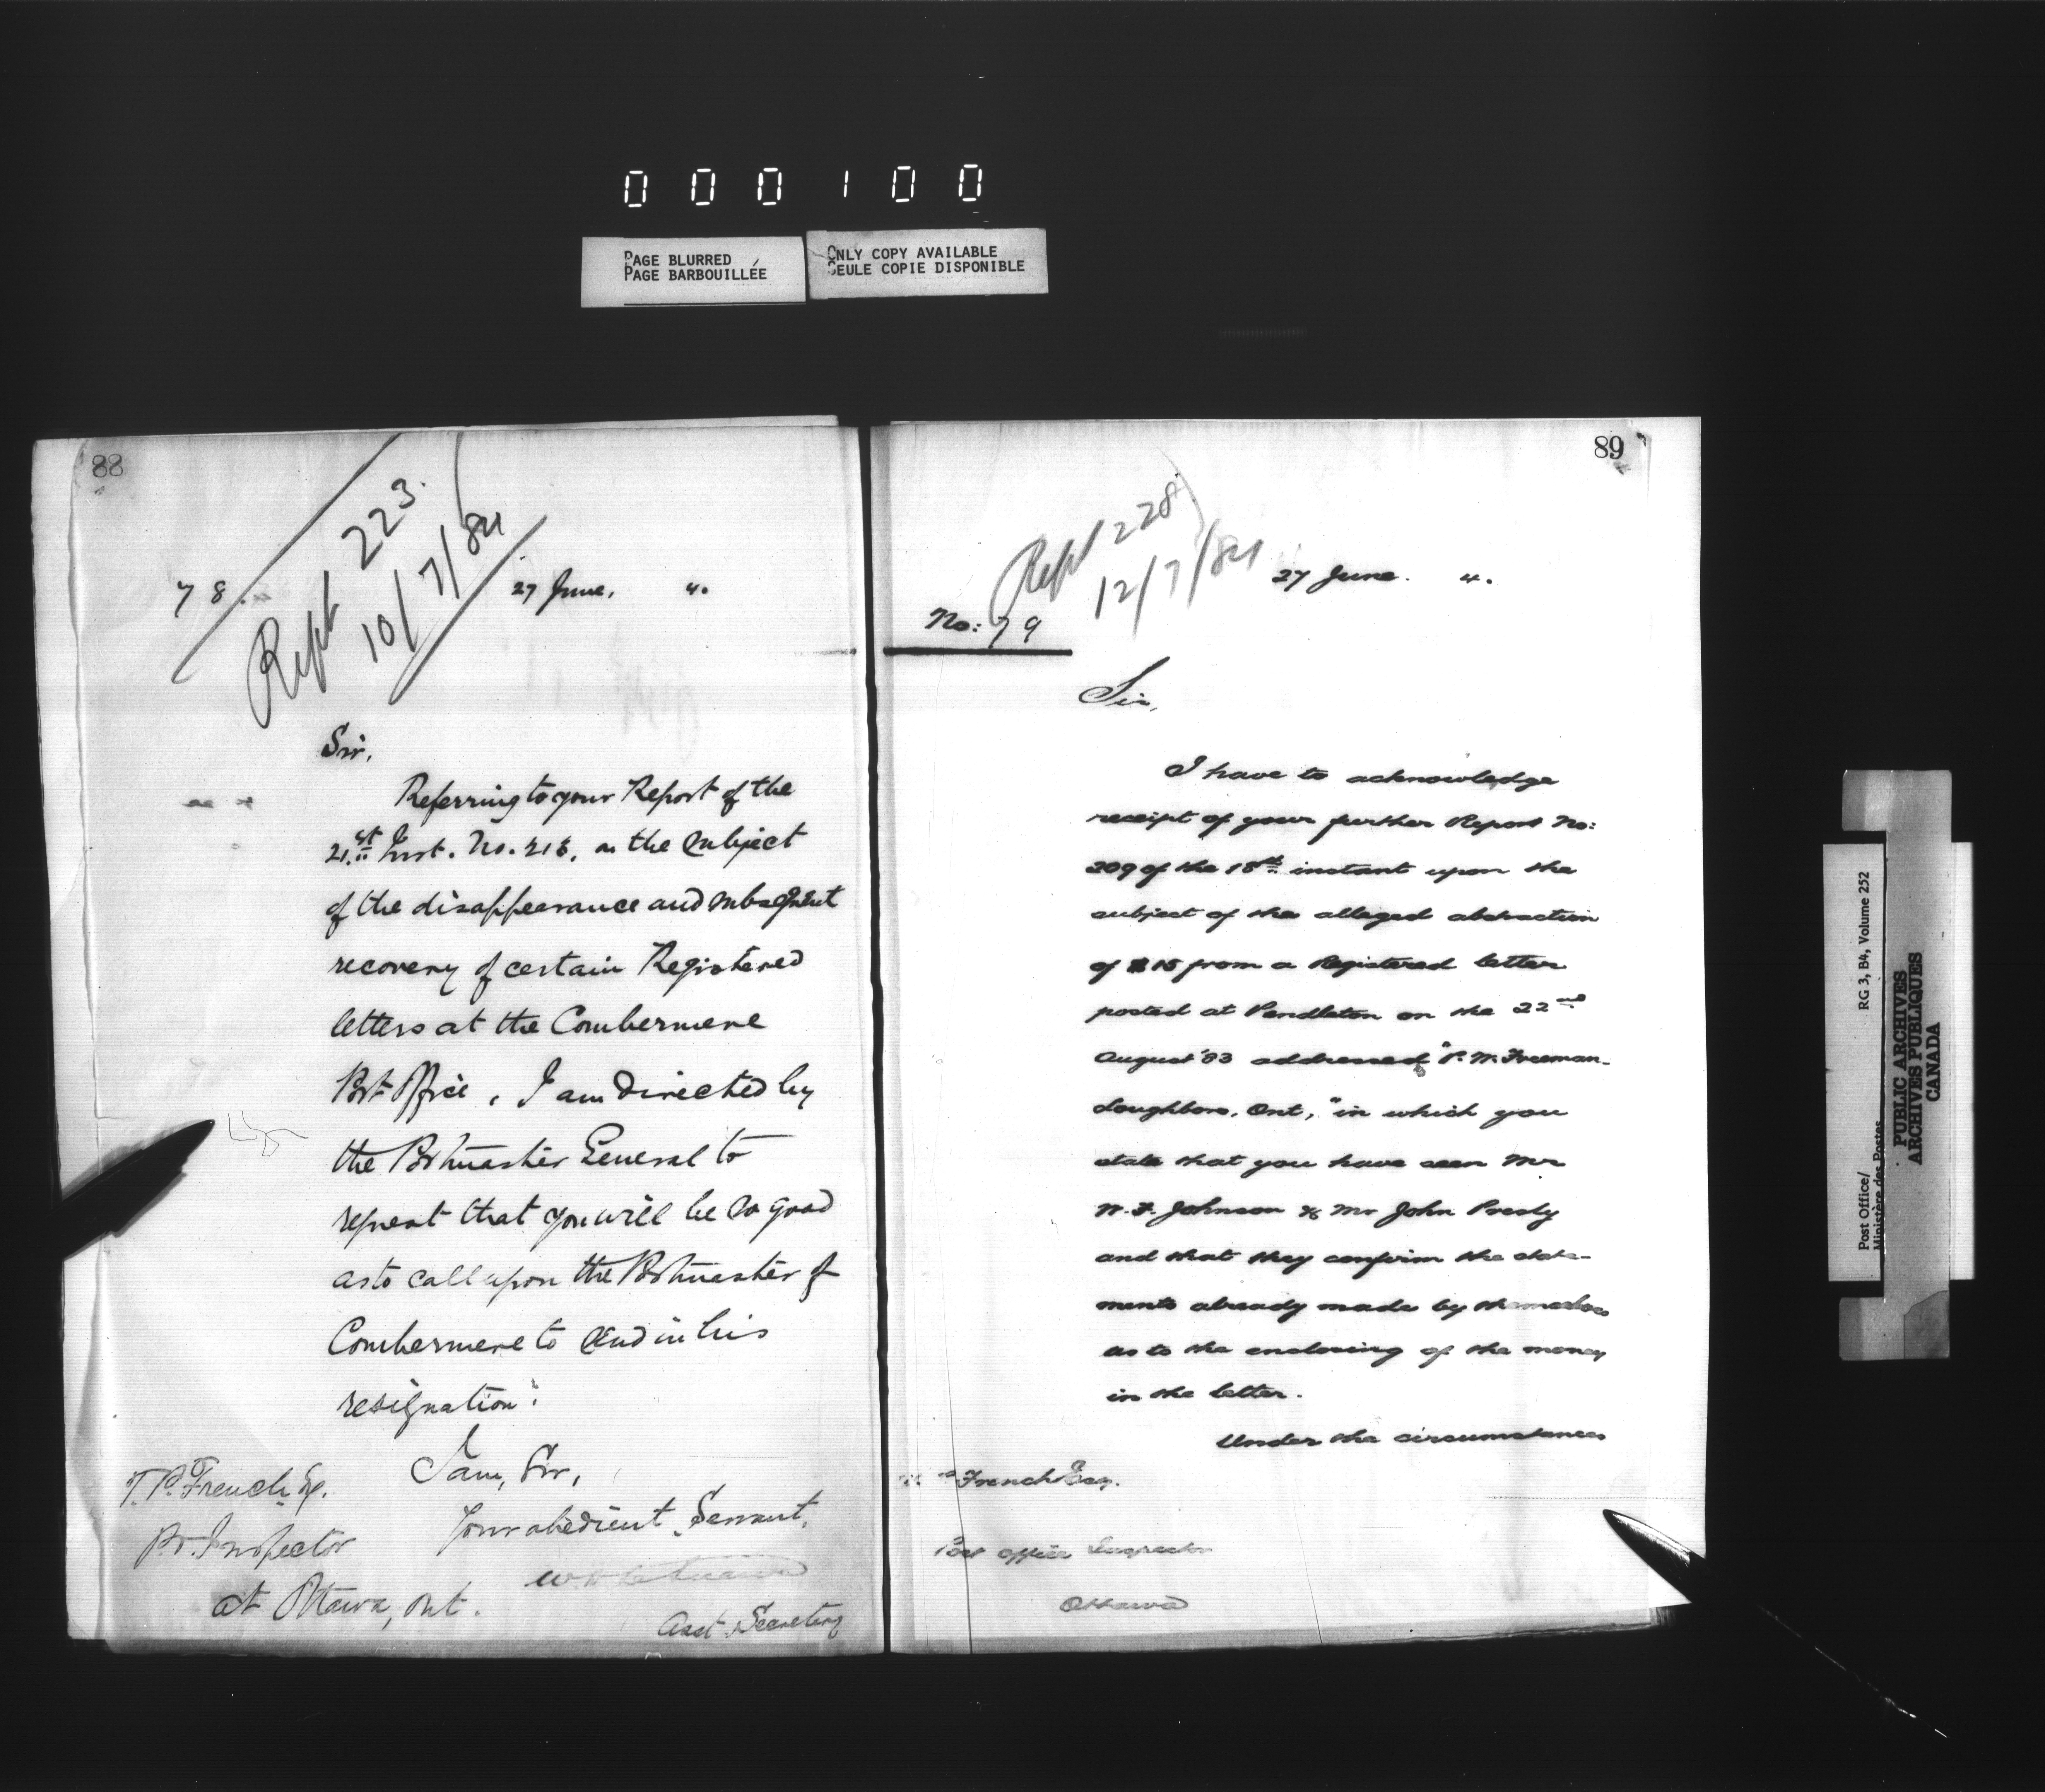 000100
PAGE BLURRED
PAGE BARBOUILLÉE
ONLY COPY AVAILABLE
SEULE COPIE DISPONIBLE
88
Rept 223.
10/7/84
78. 27 June, 4.
Sir,
Referring to your Report of the
21.st Inst. No. 216, on the subject
of the disappearance and subsequent
recovery of certain Registered
letters at the Combermere
Post Office, I am directed by
the Postmaster General to
request that you will be so good
as to call upon the Postmaster of
Combermere to send in his
resignation.
I am, Sir,
Your obedient Servant,
Asst. Secretary
T. P. French Esq.
P.O. Inspector
at Ottawa, Ont.
89
Rept 228
12/7/84
27 June. 4.
No: 79
Sir,
I have to acknowledge
receipt of your further Report No:
209 of the 18th instant upon the
subject of the alleged abstraction
of $15 from a Registered letter
posted at Pendleton on the 22nd
August '83 addressed "P. W. Freeman-
Loughboro, Ont," in which you
state that you have seen Mr
W. F. Johnson & Mr John Presly
and that they confirm the state-
ments already made by themselves
as to the enclosing of the money
in the letter.
Under the circumstances
French Esq.
Post Office Inspector
Ottawa
Post Office/ RG 3, B4, Volume 252
Ministère des Postes
PUBLIC ARCHIVES
ARCHIVES PUBLIQUES
CANADA